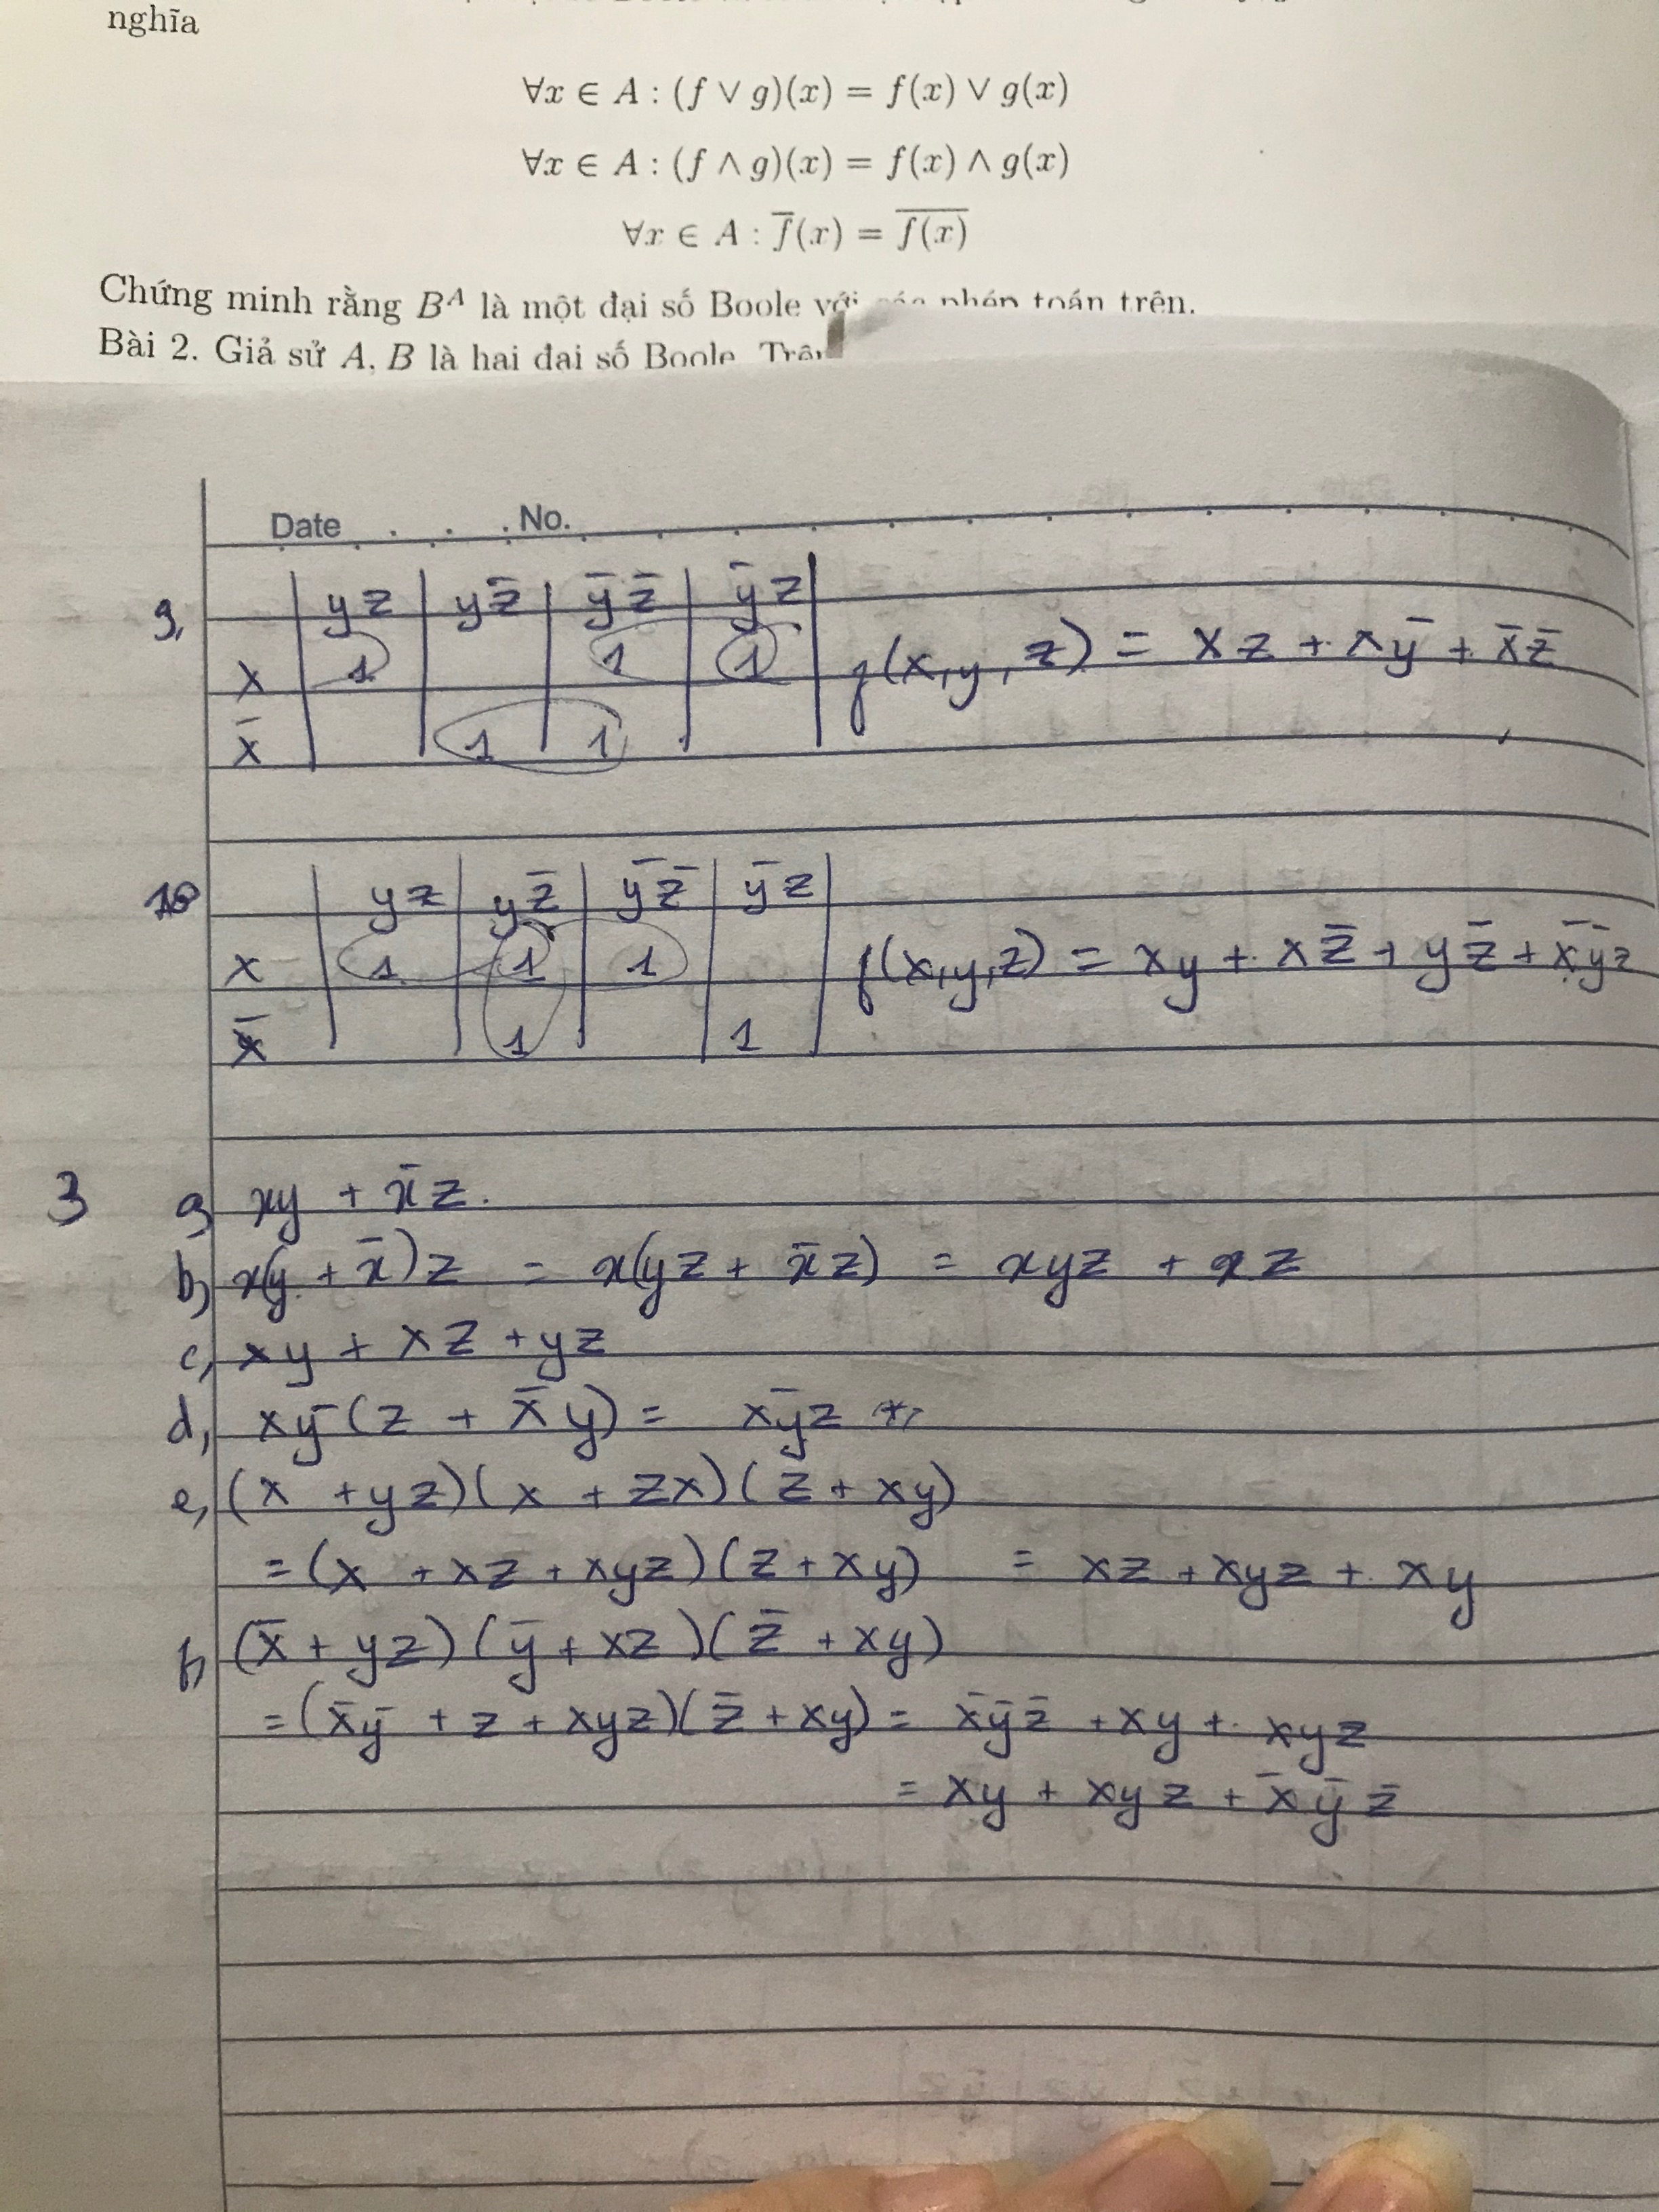 nghĩa
∀x ∈ A : (f ∨ g)(x) = f(x) ∨ g(x)
∀x ∈ A : (f ∧ g)(x) = f(x) ∧ g(x)
∀x ∈ A : f̅(x) = \overline{f(x)}
Chứng minh rằng Bᴬ là một đại số Boole với các phép toán trên.
Bài 2. Giả sử A, B là hai đại số Boole. Trên
Date . . . No.
9, yz yz̅ y̅z̅ y̅z
x 1 1 1 f(x,y,z) = xz + xy̅ + x̅z̅
x̅ 1 1
10 yz yz̅ y̅z̅ y̅z
x 1 1 1 f(x,y,z) = xy + xz̅ + yz̅ + x̅y̅z
x̅ 1 1
3 a, xy + x̅z.
b, x(y + x̅)z = x(yz + x̅z) = xyz + xz
c, xy + xz + yz
d, xy̅(z + x̅y) = xy̅z
e, (x + yz)(x + zx)(z + xy)
= (x + xz + xyz)(z + xy) = xz + xyz + xy
f, (x̅ + yz)(y̅ + xz)(z̅ + xy)
= (x̅y̅ + z + xyz)(z̅ + xy) = x̅y̅z̅ + xy + xyz
= xy + xyz + x̅y̅z̅